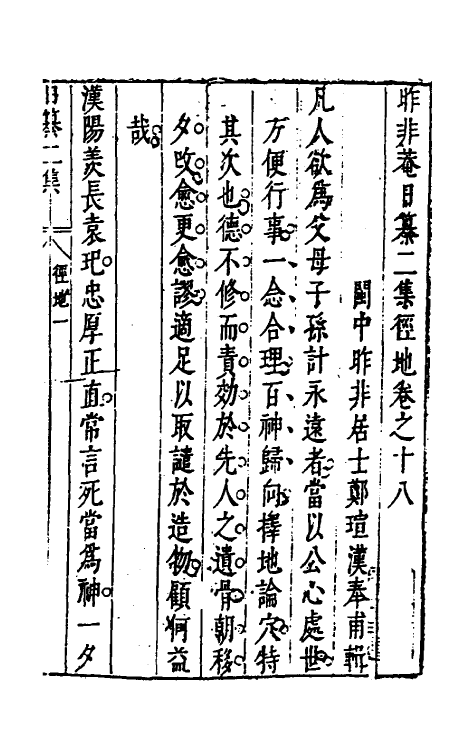 昨非菴日纂二集徑地卷之十八
閩中昨非居士鄭瑄漢奉甫輯
凡人欲為父母子孫計永遠者當以公心處世
方便行事一念合理百神歸向擇地論穴特
其次也德不修而責効於先人之遺骨朝移
夕改愈更愈謬適足以取譴於造物顧何益
哉
漢陽羨長袁玘忠厚正直常言死當為神一夕
日纂二集
徑地一